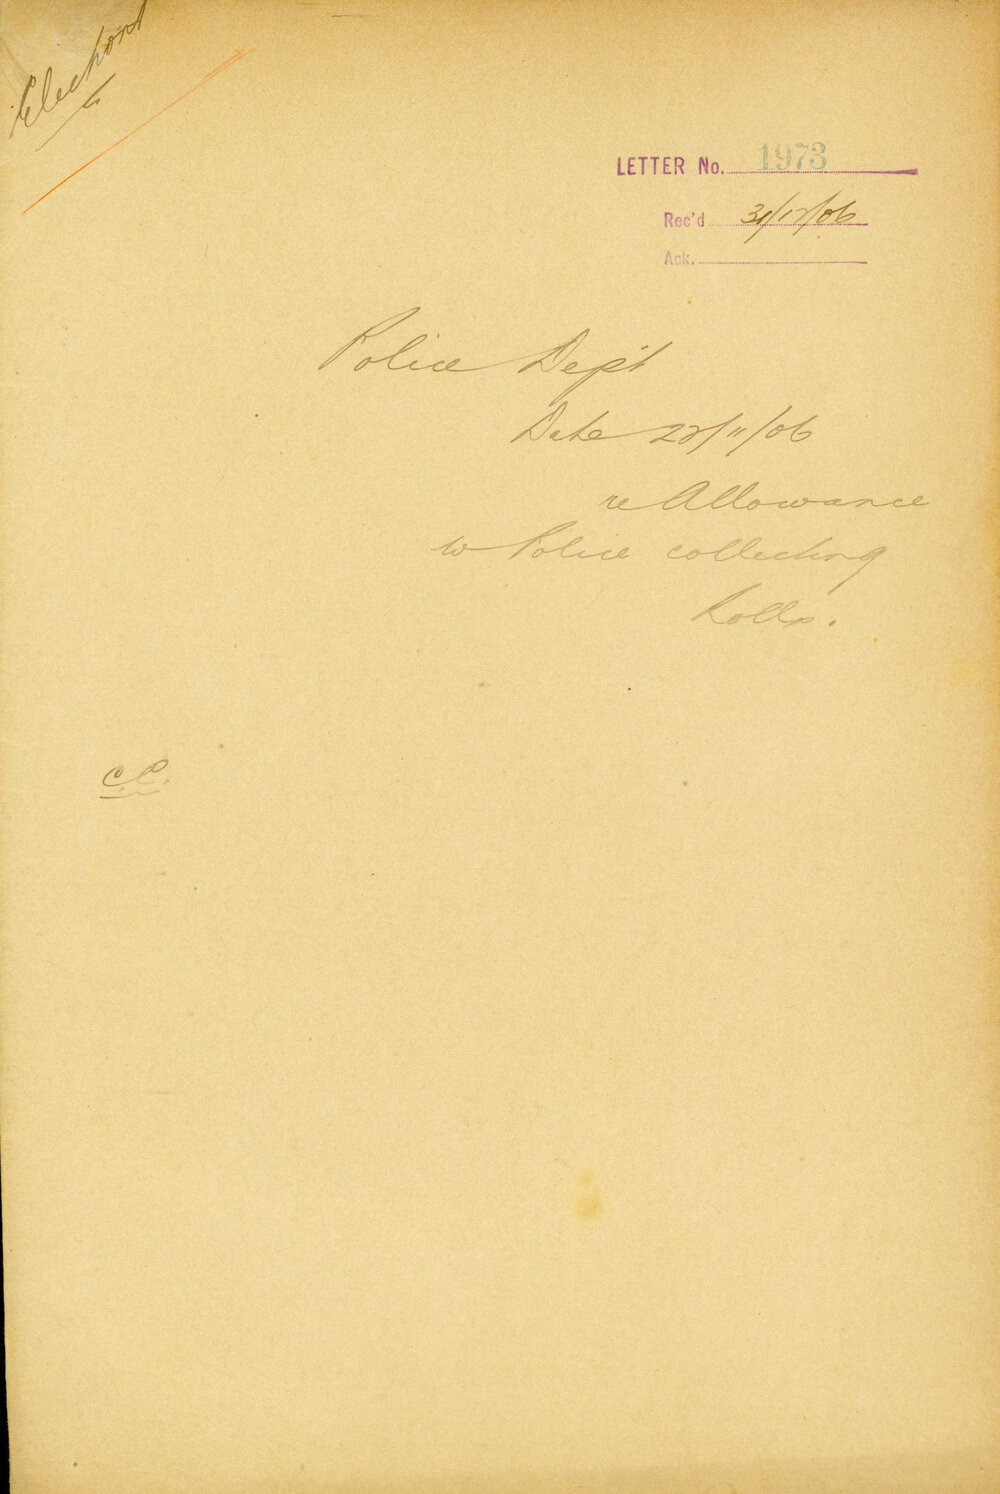 Elections
LETTER No. 1973
Rec'd 31/12/06
Ack.
Police Dep't
Date 22/11/06
re Allowance
to Police collecting
Rolls.
C.C.